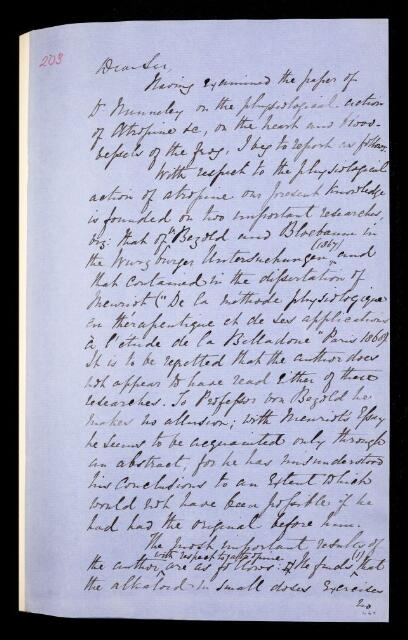 203
Dear Sir,
Having examined the paper of
Dr Nunneley on the physiological action
of Atropine &c, on the heart and blood-
vessels of the frog, I beg to report as follows.
With respect to the physiological
action of atropine our present knowledge
is founded on two important researches,
viz: that of "Bezold and Bloebaum in
the Wurzburger Untersuchungen (1867) and
that contained in the dissertation of
Meuriot ("De la méthode physiologique
en thérapeutique et de ses applications
à l'étude de la Belladone" Paris 1868).
It is to be regretted that the author does
not appear to have read either of these
researches. To Professor von Bezold he
makes no allusion; with Meuriot's Essay
he seems to be acquainted only through
an abstract, for he has misunderstood
his conclusions to an extent which
would not have been possible if he
had had the original before him.
The most important results of
the author with respect to atropine are as follows: (1) He finds that
the alkaloid in small doses exercises
no